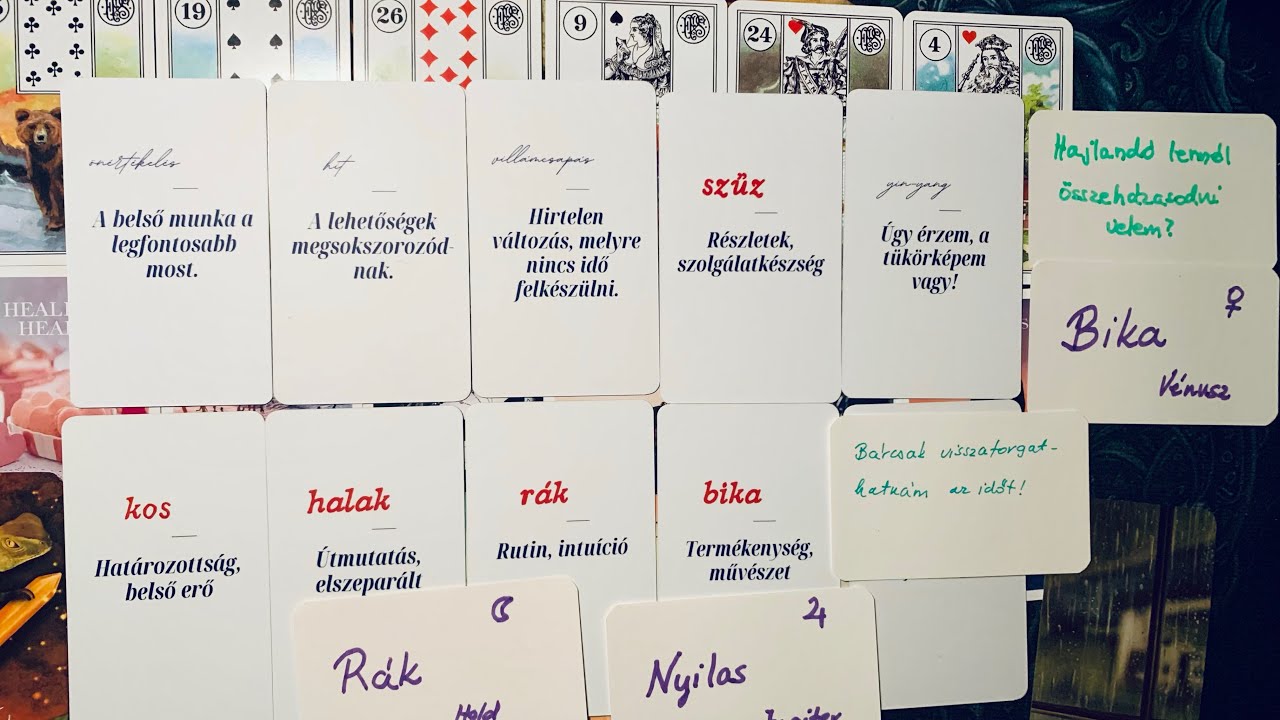 19
26
9
24
4
HEAL
HEA
önértékelés
A belső munka a
legfontosabb
most.
hit
A lehetőségek
megsokszorozód-
nak.
villámcsapás
Hirtelen
változás, melyre
nincs idő
felkészülni.
szűz
Részletek,
szolgálatkészség
yin-yang
Úgy érzem, a
tükörképem
vagy!
Hajlandó lennél
összeházasodni
velem?
Bika
Vénusz
kos
Határozottság,
belső erő
halak
Útmutatás,
elszeparált
rák
Rutin, intuíció
bika
Termékenység,
művészet
Bárcsak visszaforgat-
hatnám az időt!
Rák
Hold
Nyilas
Jupiter